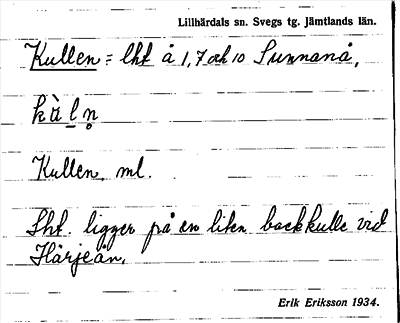 Lillhärdals sn. Svegs tg. Jämtlands län.
Kullen = lht å 1,7 och 10 Sunnanå,
kàḷn̥
Kullen, ml.
Lht. ligger på en liten backkulle vid
Härjeån.
Erik Eriksson 1934.